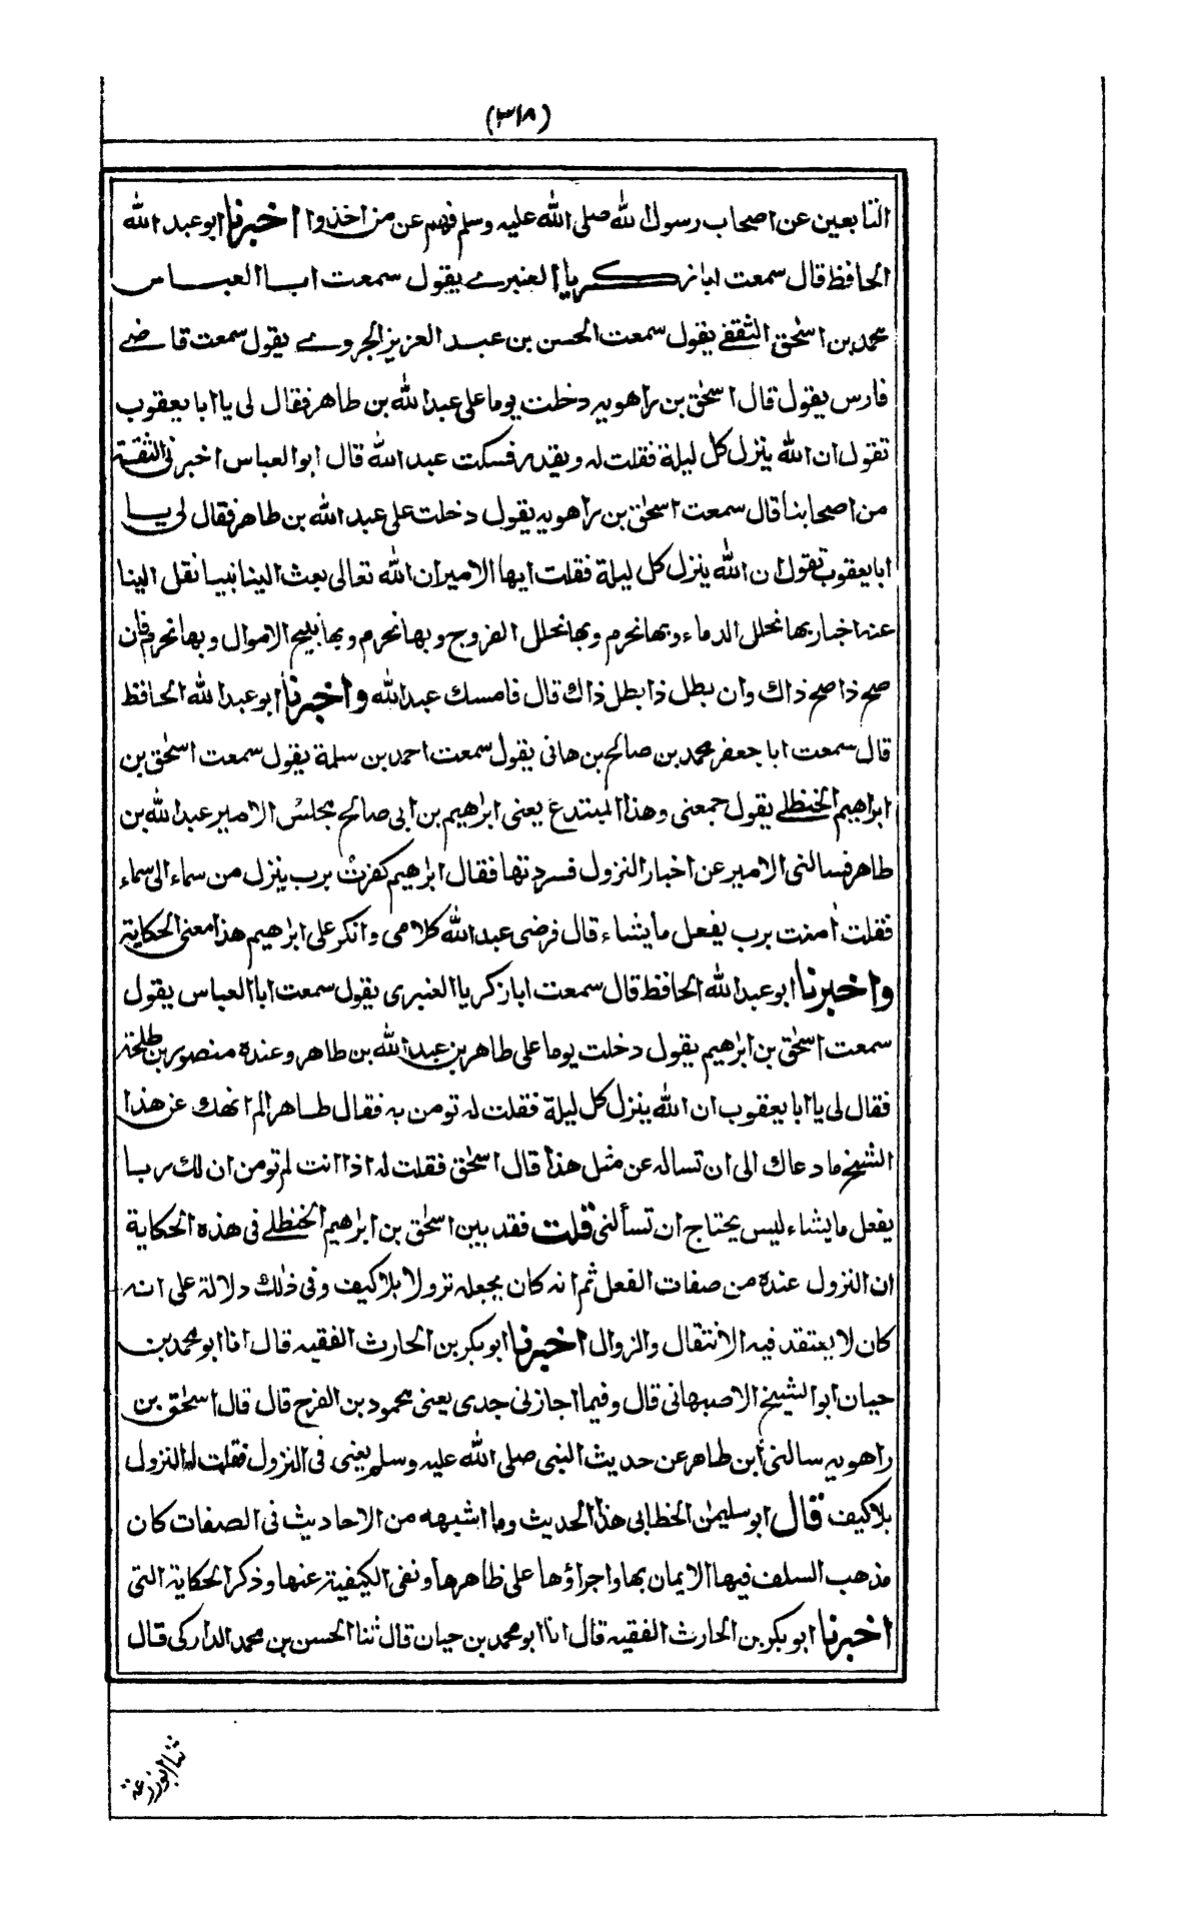 (٣١٨)
التابعين عن اصحاب رسول الله صلى الله عليه وسلم فهم عن من اخذوا اخبرنا ابو عبد الله
الحافظ قال سمعت ابا زكريا العنبرے يقول سمعت ابا العباس
محمد بن اسحٰق الثقفے يقول سمعت الحسن بن عبد العزيز الجروے يقول سمعت قاضے
فارس يقول قال اسحٰق بن راهويه دخلت يوما على عبد الله بن طاهر فقال لى يا ابا يعقوب
تقول ان الله ينزل كل ليلة فقلت له ويقدر فسكت عبد الله قال ابو العباس اخبرنى الثقة
من اصحابنا قال سمعت اسحٰق بن راهويه يقول دخلت على عبد الله بن طاهر فقال لى يا
ابا يعقوب تقول ان الله ينزل كل ليلة فقلت ايها الامير ان الله تعالى بعث الينا نبيا نقل الينا
عنه اخبار بها نحلل الدماء وبها نحرم وبها نحلل الفروج وبها نحرم وبها نبيح الاموال وبها نحرم فان
صح ذا صح ذاك وان بطل ذا بطل ذاك قال فامسك عبد الله واخبرنا ابو عبد الله الحافظ
قال سمعت ابا جعفر محمد بن صالح بن هانى يقول سمعت احمد بن سلمة يقول سمعت اسحٰق بن
ابراهيم الحنظلے يقول جمعنى وهذا المبتدع يعنى ابراهيم بن ابى صالح مجلس الامير عبد الله بن
طاهر فسالنى الامير عن اخبار النزول فسردتها فقال ابراهيم كفرت برب ينزل من سماء الى سماء
فقلت اٰمنت برب يفعل ما يشاء قال فرضى عبد الله كلامى وانكر على ابراهيم هذا معنى الحكاية
واخبرنا ابو عبد الله الحافظ قال سمعت ابا زكريا العنبرى يقول سمعت ابا العباس يقول
سمعت اسحٰق بن ابراهيم يقول دخلت يوما على طاهر بن عبد الله بن طاهر وعنده منصور بن طلحة
فقال لى يا ابا يعقوب ان الله ينزل كل ليلة فقلت له تومن به فقال طاهر الم انهك عن هذا
الشيخ ما دعاك الى ان تساله عن مثل هذا قال اسحٰق فقلت له اذا انت لم تومن ان لك ربا
يفعل ما يشاء ليس يحتاج ان تسألنى قلت فقد بين اسحٰق بن ابراهيم الحنظلے فى هذه الحكاية
ان النزول عنده من صفات الفعل ثم انه كان يجعله نزولا بلا كيف وفى ذلك دلالة على انه
كان لا يعتقد فيه الانتقال والزوال اخبرنا ابو بكر بن الحارث الفقيه قال انا ابو محمد بن
حيان ابو الشيخ الاصبهانى قال وفيما اجازنى جدى يعنى محمود بن الفرج قال قال اسحٰق بن
راهويه سالنى ابن طاهر عن حديث النبى صلى الله عليه وسلم يعنى فى النزول فقلت له النزول
بلا كيف قال ابو سليمٰن الخطابى هذا الحديث وما اشبهه من الاحاديث فى الصفات كان
مذهب السلف فيها الايمان بها واجراؤها على ظاهرها ونفى الكيفية عنها وذكر الحكاية التى
اخبرنا ابو بكر بن الحارث الفقيه قال انا ابو محمد بن حيان قال ثنا الحسن بن محمد الداركى قال
ثنا ابو زرعة